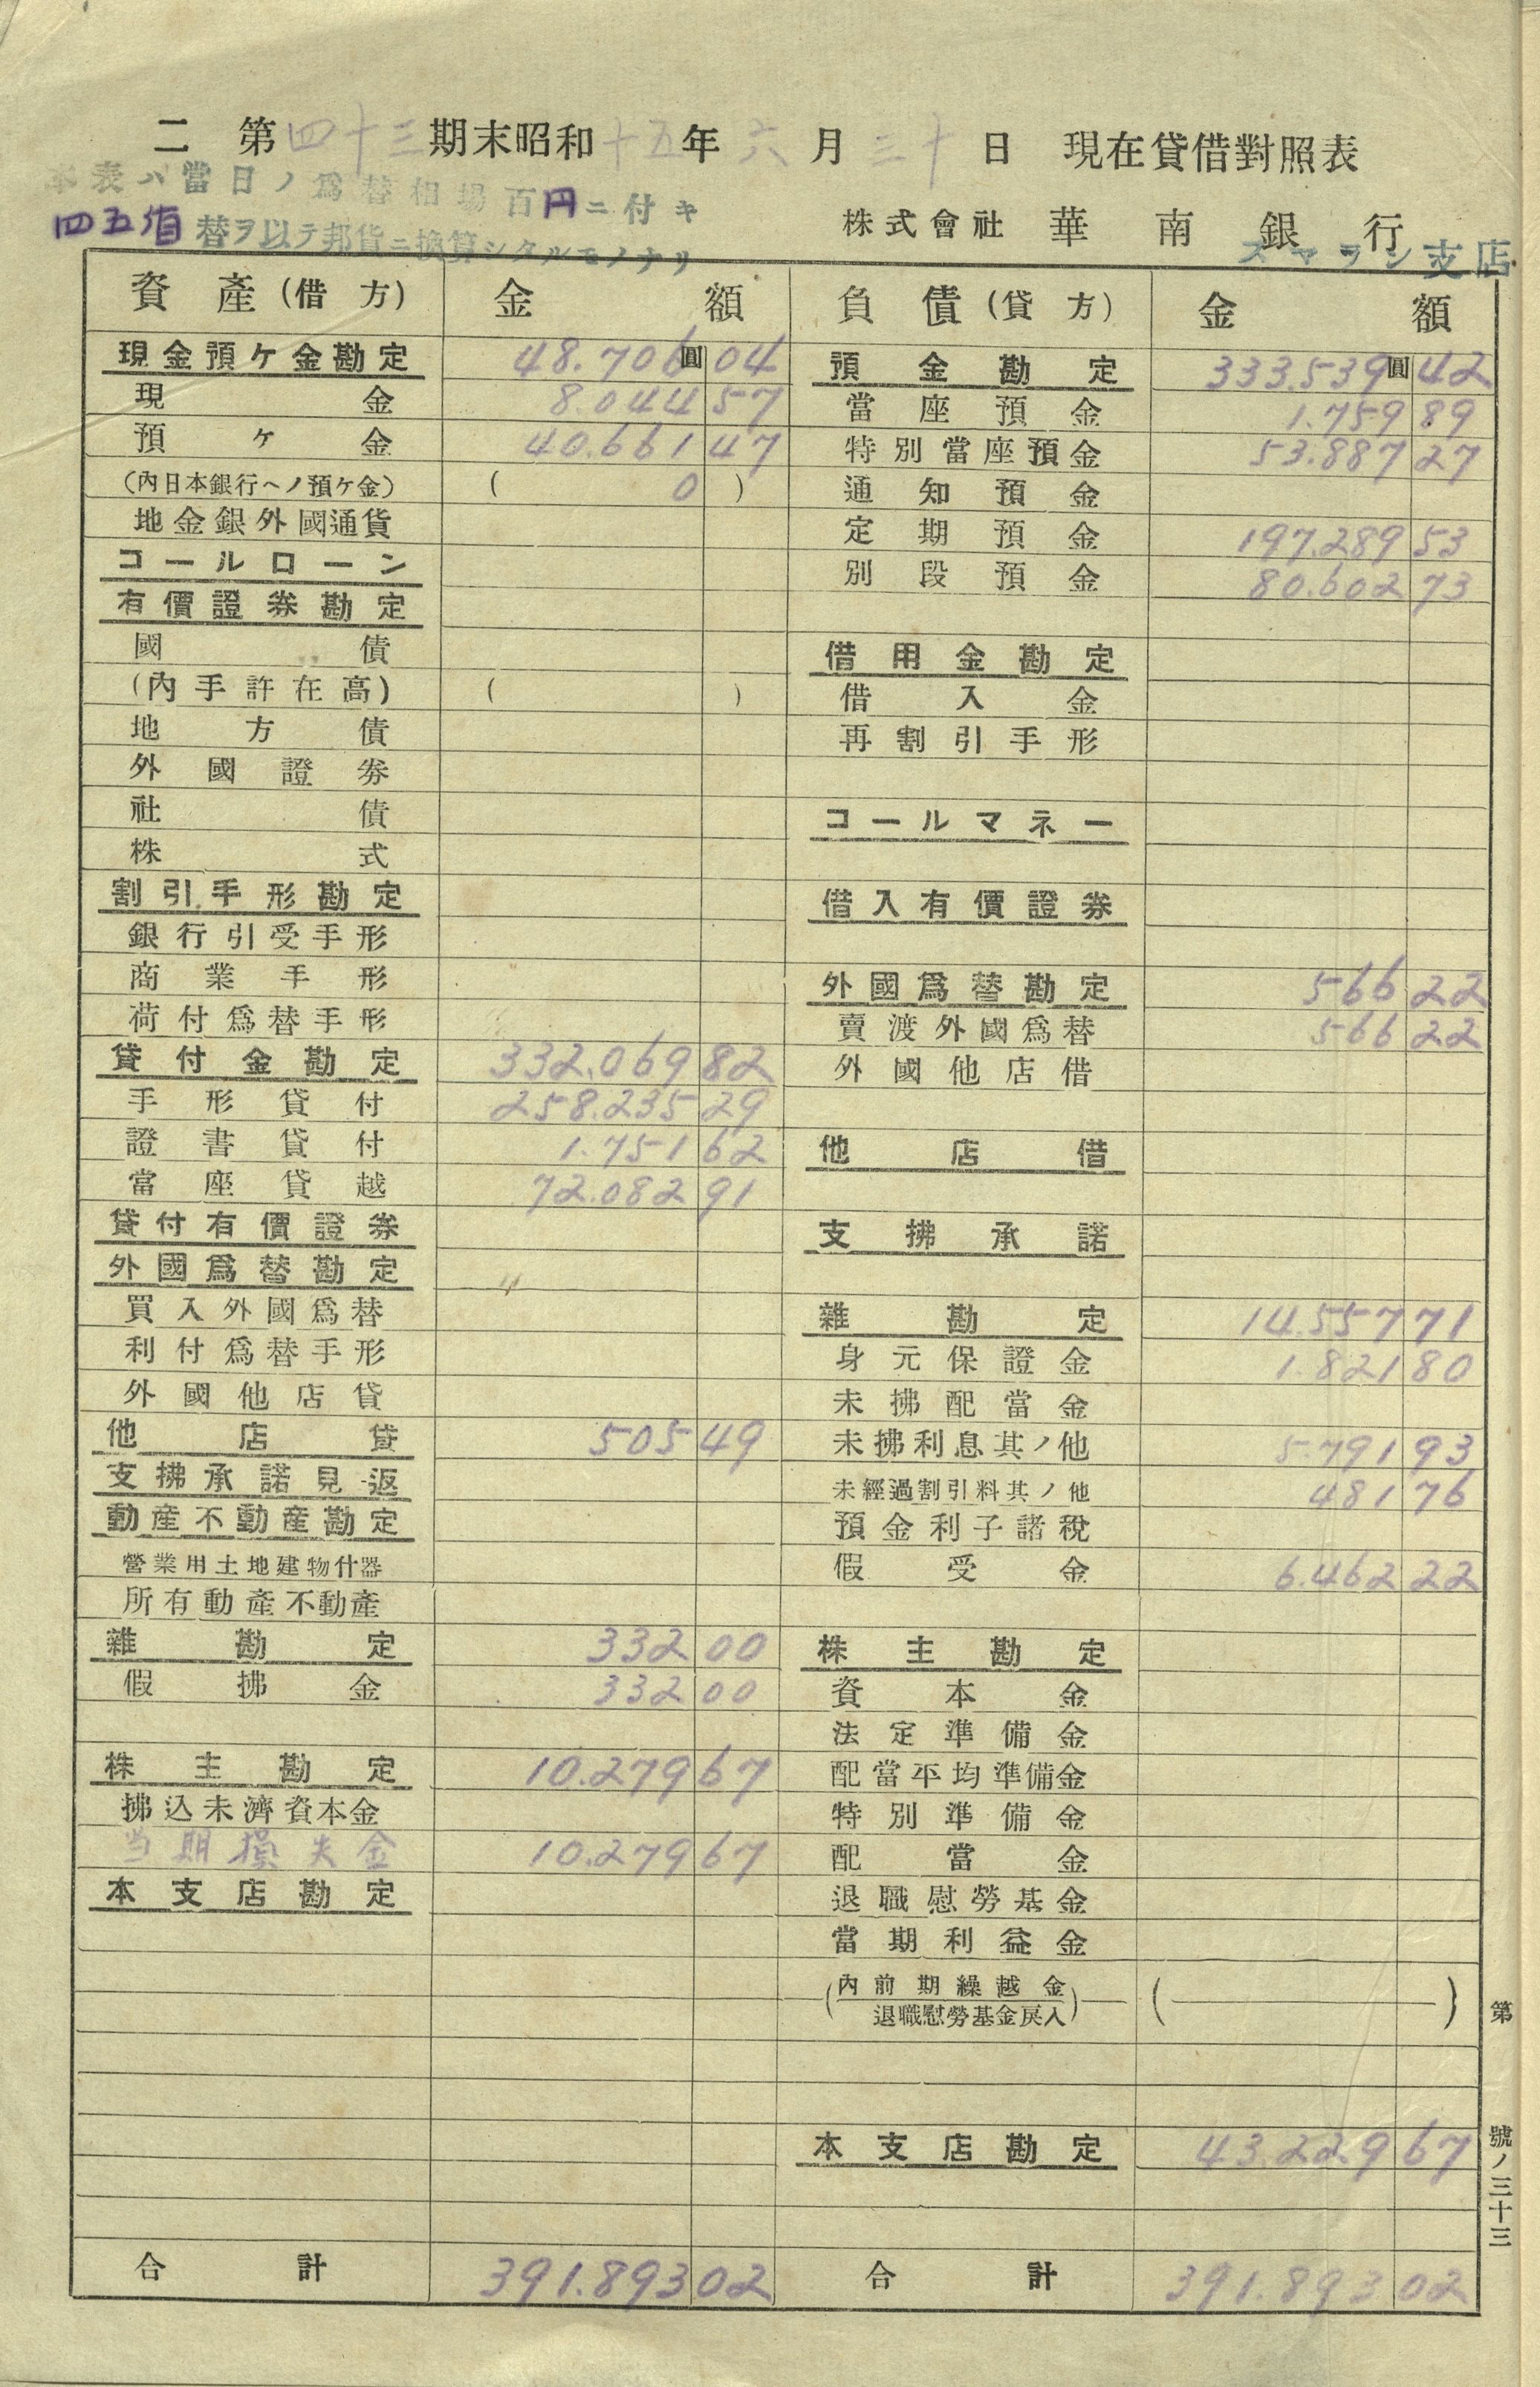 二 第四十三期末昭和十五年六月三十日 現在貸借對照表
本表ハ當日ノ爲替相場百円ニ付キ
四五盾替ヲ以テ邦貨ニ換算シタルモノナリ
株式會社 華南銀行
スマラン支店
資產(借方) 金額 負債(貸方) 金額
現金預ケ金勘定 48.706圓04
現金 8.044 57
預ケ金 40.661 47
(內日本銀行ヘノ預ケ金) ( 0 )
地金銀外國通貨
コールローン
有價證券勘定
國債
(內手許在高) ( )
地方債
外國證券
社債
株式
割引手形勘定
銀行引受手形
商業手形
荷付爲替手形
貸付金勘定 332.069 82
手形貸付 258.235 29
證書貸付 1.751 62
當座貸越 72.082 91
貸付有價證券
外國爲替勘定
買入外國爲替
利付爲替手形
外國他店貸
他店貸 505 49
支拂承諾見返
動產不動產勘定
營業用土地建物什器
所有動產不動產
雜勘定 332 00
假拂金 332 00
株主勘定 10.279 67
拂込未濟資本金
当期損失金 10.279 67
本支店勘定
合計 391.893 02
預金勘定 333.539圓42
當座預金 1.759 89
特別當座預金 53.887 27
通知預金
定期預金 197.289 53
別段預金 80.602 73
借用金勘定
借入金
再割引手形
コールマネー
借入有價證券
外國爲替勘定 566 22
賣渡外國爲替 566 22
外國他店借
他店借
支拂承諾
雜勘定 14.557 71
身元保證金 1.821 80
未拂配當金
未拂利息其ノ他 5.791 93
未經過割引料其ノ他 481 76
預金利子諸稅
假受金 6.462 22
株主勘定
資本金
法定準備金
配當平均準備金
特別準備金
配當金
退職慰勞基金
當期利益金
(內前期繰越金
退職慰勞基金戾入) ( )
本支店勘定 43.229 67
合計 391.893 02
第 號ノ三十三